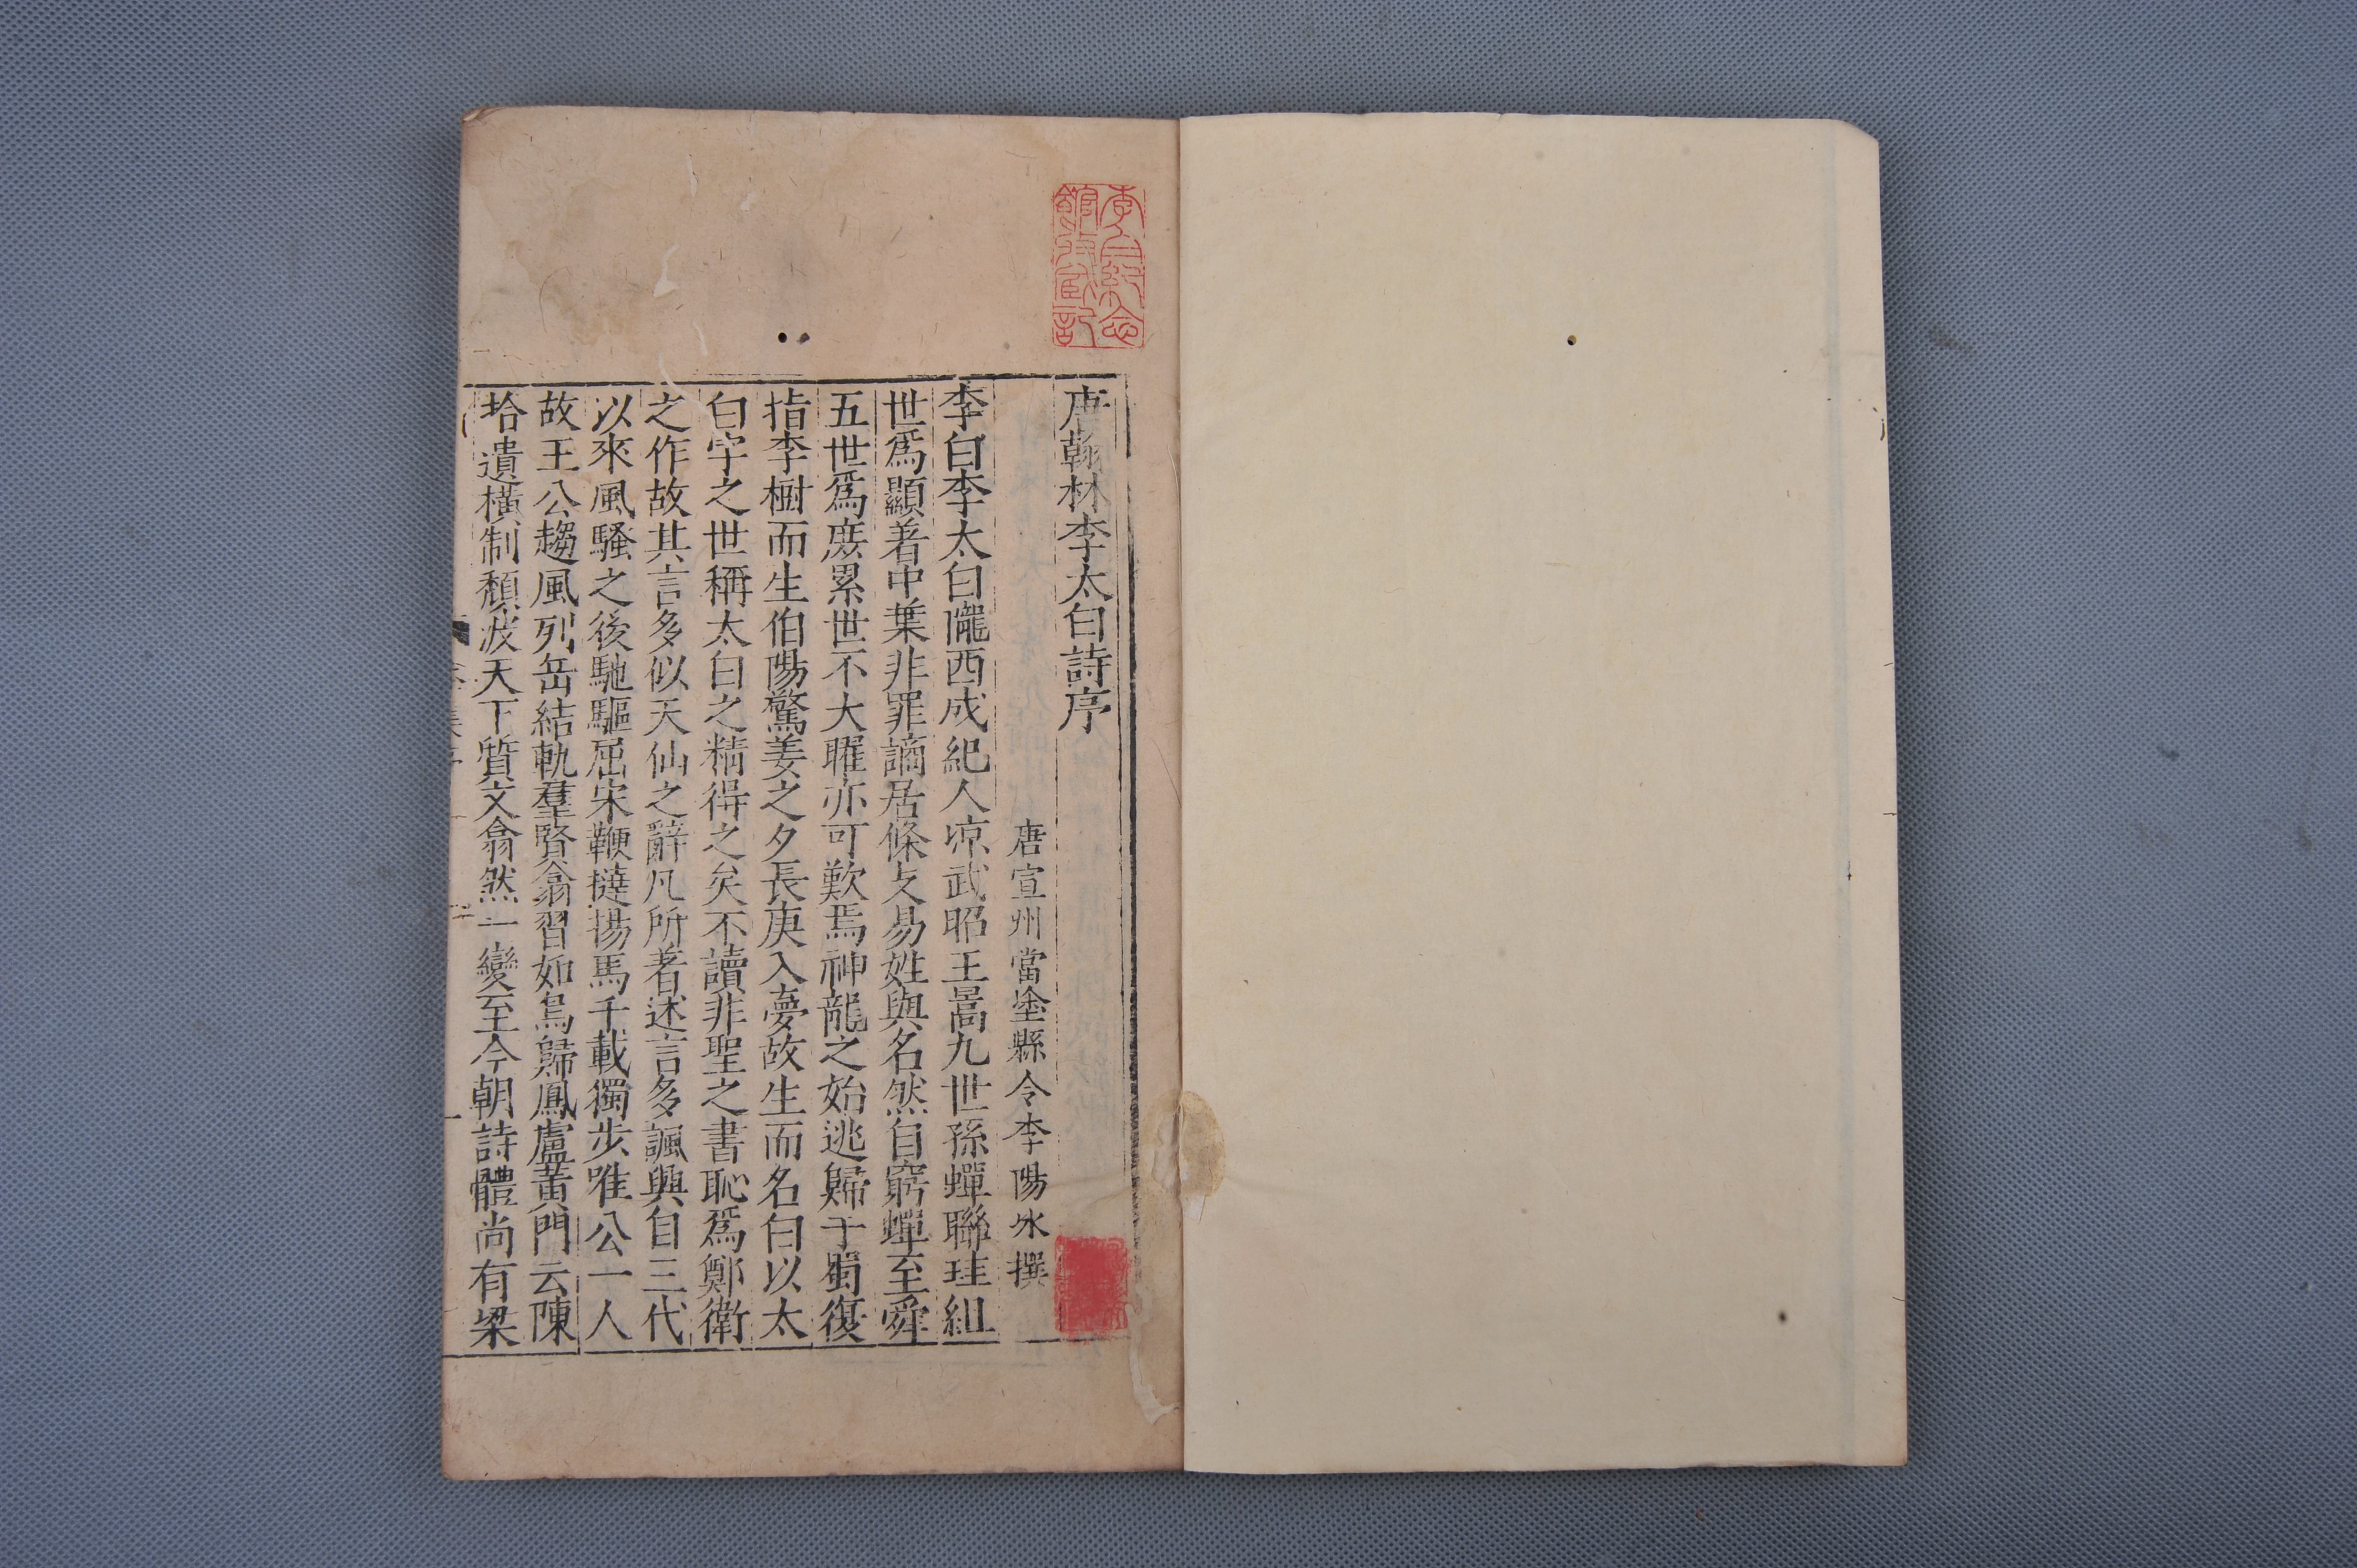 李白紀念
館收藏記
唐翰林李太白詩序
唐宣州當塗縣令李陽氷撰
李白李太白隴西成紀人凉武昭王暠九世孫蟬聯珪組
世爲顯著中葉非罪謫居條攴易姓與名然自窮蟬至舜
五世爲庶累世不大曜亦可歎焉神龍之始逃歸于蜀復
指李樹而生伯陽驚姜之夕長庚入夢故生而名白以太
白字之世稱太白之精得之矣不讀非聖之書恥爲鄭衛
之作故其言多似天仙之辭凡所著述言多諷興自三代
以來風騷之後馳驅屈宋鞭撻揚馬千載獨步唯公一人
故王公趨風列岳結軌羣賢翕習如鳥歸鳳盧黃門云陳
拾遺橫制頽波天下質文翕然一變至今朝詩體尚有梁